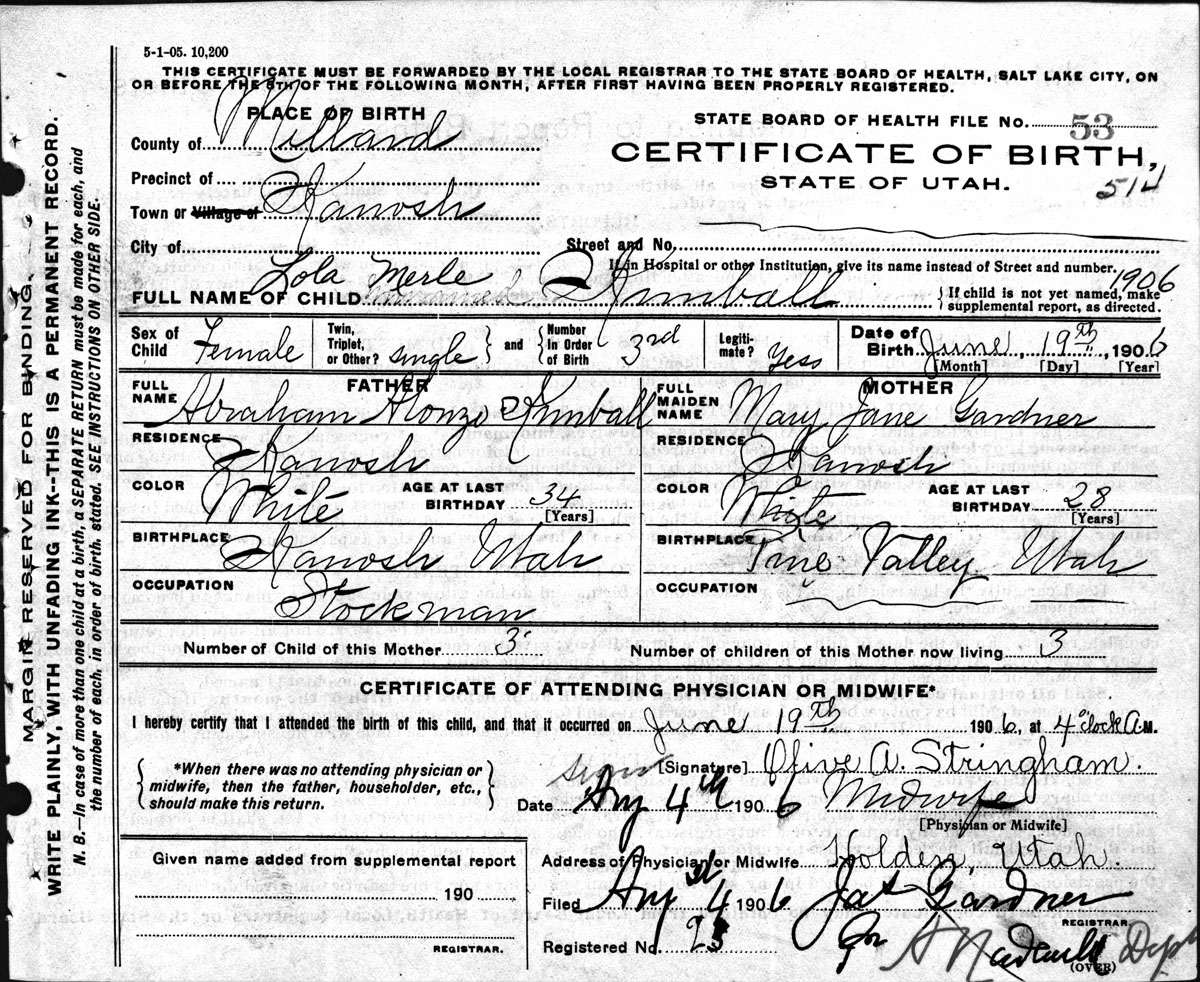 5-1-05. 10,200
THIS CERTIFICATE MUST BE FORWARDED BY THE LOCAL REGISTRAR TO THE STATE BOARD OF HEALTH, SALT LAKE CITY, ON
OR BEFORE THE 5TH OF THE FOLLOWING MONTH, AFTER FIRST HAVING BEEN PROPERLY REGISTERED.
PLACE OF BIRTH
County of Millard
Precinct of
Town or Village of Kanosh
City of
STATE BOARD OF HEALTH FILE No. 53
CERTIFICATE OF BIRTH,
STATE OF UTAH.
514
Street and No.
If in Hospital or other Institution, give its name instead of Street and number.
FULL NAME OF CHILD Lola Merle Kimball
1906
If child is not yet named, make
supplemental report, as directed.
Sex of Child Female
Twin, Triplet, or Other? single
and
Number In Order of Birth 3rd
Legiti-mate? Yess
Date of Birth June 19th, 1906
[Month] [Day] [Year]
FATHER
FULL NAME Abraham Alonzo Kimball
RESIDENCE Kanosh
COLOR White
AGE AT LAST BIRTHDAY 34
[Years]
BIRTHPLACE Kanosh Utah
OCCUPATION Stockman
MOTHER
FULL MAIDEN NAME Mary Jane Gardner
RESIDENCE Kanosh
COLOR White
AGE AT LAST BIRTHDAY 28
[Years]
BIRTHPLACE Pine Valley Utah
OCCUPATION
Number of Child of this Mother 3
Number of children of this Mother now living 3
CERTIFICATE OF ATTENDING PHYSICIAN OR MIDWIFE*
I hereby certify that I attended the birth of this child, and that it occurred on June 19th 1906, at 4 oclock A.M.
*When there was no attending physician or
midwife, then the father, householder, etc.,
should make this return.
[Signature] Olive A. Stringham.
Date Aug 4th 1906 Midwife
[Physician or Midwife]
Address of Physician or Midwife Holden, Utah.
Filed Aug 4 1906 Jas Gardner
REGISTRAR.
Registered No. 23
Dep
(OVER)
Given name added from supplemental report
190
REGISTRAR.
MARGIN RESERVED FOR BINDING.
WRITE PLAINLY, WITH UNFADING INK--THIS IS A PERMANENT RECORD.
N. B.—In case of more than one child at a birth, a SEPARATE RETURN must be made for each, and
the number of each, in order of birth, stated. SEE INSTRUCTIONS ON OTHER SIDE.